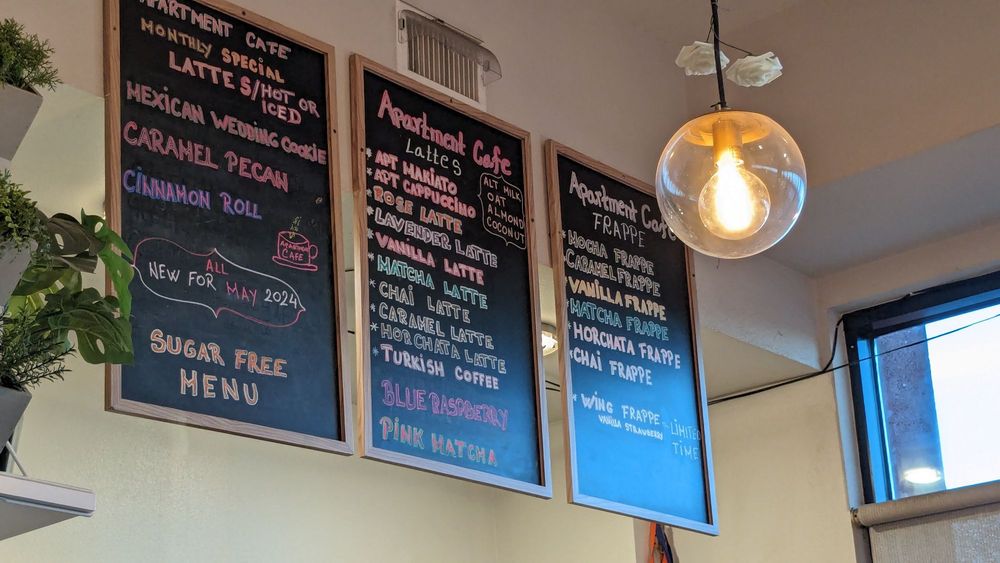 APARTMENT CAFE
MONTHLY SPECIAL
LATTE S/HOT OR
ICED
MEXICAN WEDDING COOKIE
CARAMEL PECAN
CINNAMON ROLL
APARTMENT
CAFE
ALL
NEW FOR MAY 2024
SUGAR FREE
MENU
Apartment Cafe
Lattes
* APT MAKIATO
* APT CAPPUCCINO
* ROSE LATTE
* LAVENDER LATTE
* VANILLA LATTE
* MATCHA LATTE
* CHAI LATTE
* CARAMEL LATTE
* HORCHATA LATTE
* TURKISH COFFEE
BLUE RASPBERRY
PINK MATCHA
ALT MILK
OAT
ALMOND
COCONUT
Apartment Cafe
FRAPPE
* MOCHA FRAPPE
* CARAMEL FRAPPE
* VANILLA FRAPPE
* MATCHA FRAPPE
* HORCHATA FRAPPE
* CHAI FRAPPE
* WING FRAPPE
VANILLA STRAWBERRY
LIMITED
TIME